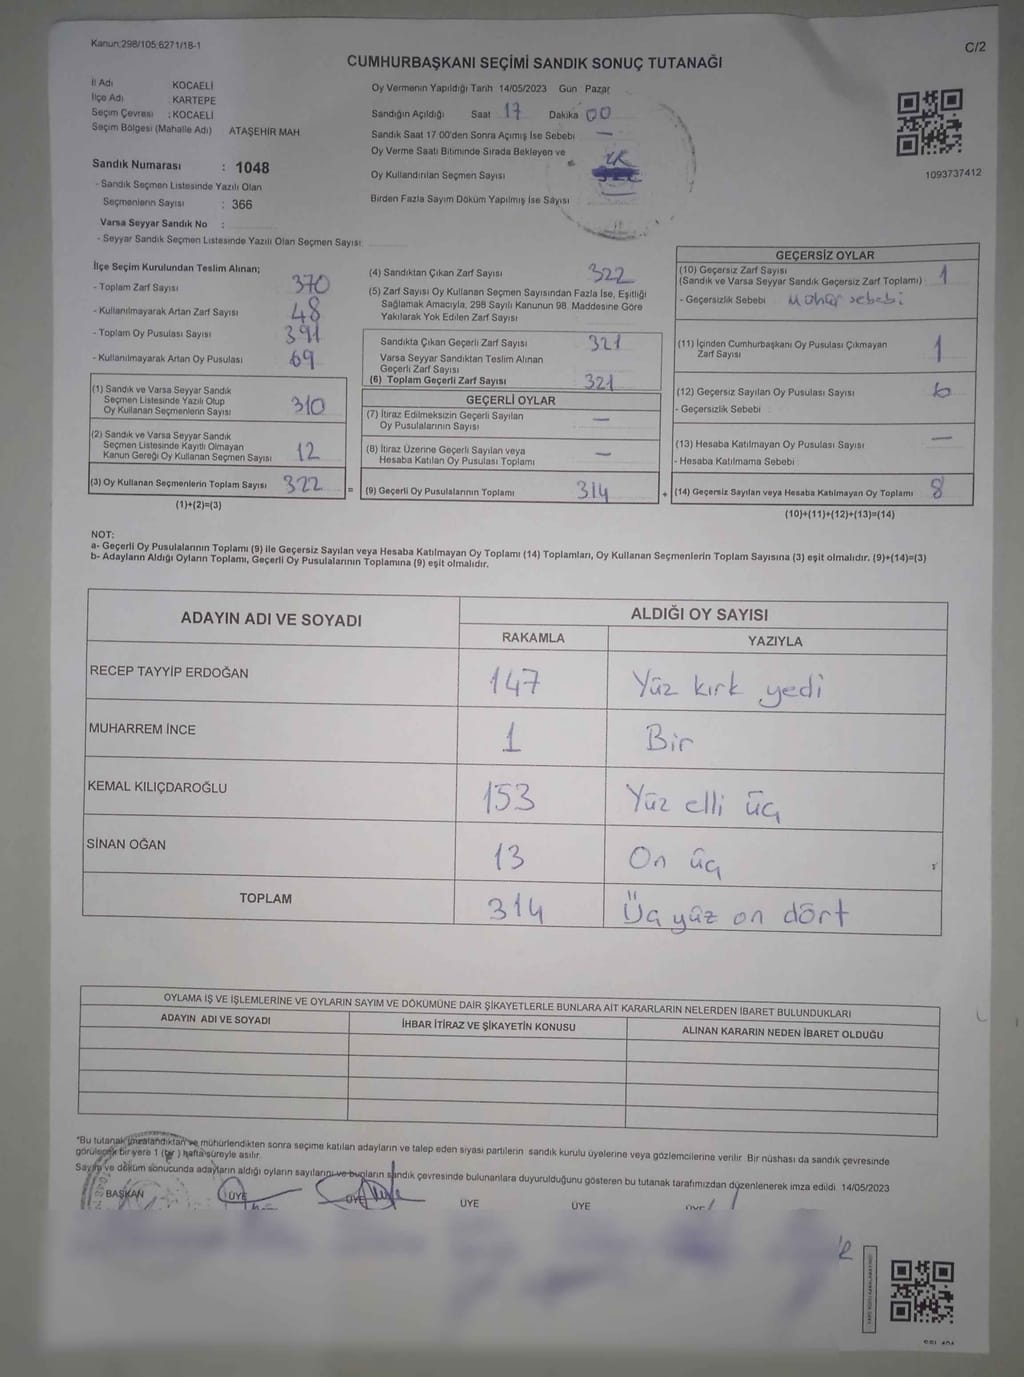 Kanun:298/105;6271/18-1
C/2
CUMHURBAŞKANI SEÇİMİ SANDIK SONUÇ TUTANAĞI
İl Adı KOCAELİ
İlçe Adı KARTEPE
Seçim Çevresi : KOCAELİ
Seçim Bölgesi (Mahalle Adı) ATAŞEHİR MAH
Sandık Numarası : 1048
- Sandık Seçmen Listesinde Yazılı Olan
Seçmenlerin Sayısı : 366
Varsa Seyyar Sandık No :
- Seyyar Sandık Seçmen Listesinde Yazılı Olan Seçmen Sayısı
Oy Vermenin Yapıldığı Tarih 14/05/2023 Gün Pazar
Sandığın Açıldığı Saat 17 Dakika 00
Sandık Saat 17 00'den Sonra Açımış İse Sebebi —
Oy Verme Saati Bitiminde Sırada Bekleyen ve
Oy Kullandırılan Seçmen Sayısı
Birden Fazla Sayım Döküm Yapılmış İse Sayısı
1093737412
İlçe Seçim Kurulundan Teslim Alınan;
- Toplam Zarf Sayısı 370
- Kullanılmayarak Artan Zarf Sayısı 48
- Toplam Oy Pusulası Sayısı 391
- Kullanılmayarak Artan Oy Pusulası 69
(1) Sandık ve Varsa Seyyar Sandık
Seçmen Listesinde Yazılı Olup
Oy Kullanan Seçmenlerin Sayısı 310
(2) Sandık ve Varsa Seyyar Sandık
Seçmen Listesinde Kayıtlı Olmayan
Kanun Gereği Oy Kullanan Seçmen Sayısı 12
(3) Oy Kullanan Seçmenlerin Toplam Sayısı 322
(1)+(2)=(3)
(4) Sandıktan Çıkan Zarf Sayısı 322
(5) Zarf Sayısı Oy Kullanan Seçmen Sayısından Fazla İse, Eşitliği
Sağlamak Amacıyla, 298 Sayılı Kanunun 98. Maddesine Göre
Yakılarak Yok Edilen Zarf Sayısı
Sandıkta Çıkan Geçerli Zarf Sayısı 321
Varsa Seyyar Sandıktan Teslim Alınan
Geçerli Zarf Sayısı
(6) Toplam Geçerli Zarf Sayısı 321
GEÇERLİ OYLAR
(7) İtiraz Edilmeksizin Geçerli Sayılan
Oy Pusulalarının Sayısı —
(8) İtiraz Üzerine Geçerli Sayılan veya
Hesaba Katılan Oy Pusulası Toplamı —
= (9) Geçerli Oy Pusulalarının Toplamı 314
GEÇERSİZ OYLAR
(10) Geçersiz Zarf Sayısı
(Sandık ve Varsa Seyyar Sandık Geçersiz Zarf Toplamı) 1
- Geçersizlik Sebebi mühür sebebi
(11) İçinden Cumhurbaşkanı Oy Pusulası Çıkmayan
Zarf Sayısı 1
(12) Geçersiz Sayılan Oy Pusulası Sayısı 6
- Geçersizlik Sebebi
(13) Hesaba Katılmayan Oy Pusulası Sayısı —
- Hesaba Katılmama Sebebi
+ (14) Geçersiz Sayılan veya Hesaba Katılmayan Oy Toplamı 8
(10)+(11)+(12)+(13)=(14)
NOT:
a- Geçerli Oy Pusulalarının Toplamı (9) ile Geçersiz Sayılan veya Hesaba Katılmayan Oy Toplamı (14) Toplamları, Oy Kullanan Seçmenlerin Toplam Sayısına (3) eşit olmalıdır. (9)+(14)=(3)
b- Adayların Aldığı Oyların Toplamı, Geçerli Oy Pusulalarının Toplamına (9) eşit olmalıdır.
ADAYIN ADI VE SOYADI ALDIĞI OY SAYISI
RAKAMLA YAZIYLA
RECEP TAYYİP ERDOĞAN 147 Yüz kırk yedi
MUHARREM İNCE 1 Bir
KEMAL KILIÇDAROĞLU 153 Yüz elli üç
SİNAN OĞAN 13 On üç
TOPLAM 314 Üç yüz on dört
OYLAMA İŞ VE İŞLEMLERİNE VE OYLARIN SAYIM VE DÖKÜMÜNE DAİR ŞİKAYETLERLE BUNLARA AİT KARARLARIN NELERDEN İBARET BULUNDUKLARI
ADAYIN ADI VE SOYADI İHBAR İTİRAZ VE ŞİKAYETİN KONUSU ALINAN KARARIN NEDEN İBARET OLDUĞU
*Bu tutanak imzalandıktan ve mühürlendikten sonra seçime katılan adayların ve talep eden siyasi partilerin sandık kurulu üyelerine veya gözlemcilerine verilir. Bir nüshası da sandık çevresinde
görülecek bir yere 1 (bir) hafta süreyle asılır.
Sayım ve döküm sonucunda adayların aldığı oyların sayılarını ve bunların sandık çevresinde bulunanlara duyurulduğunu gösteren bu tutanak tarafımızdan düzenlenerek imza edildi. 14/05/2023
BAŞKAN ÜYE ÜYE ÜYE ÜYE ÜYE